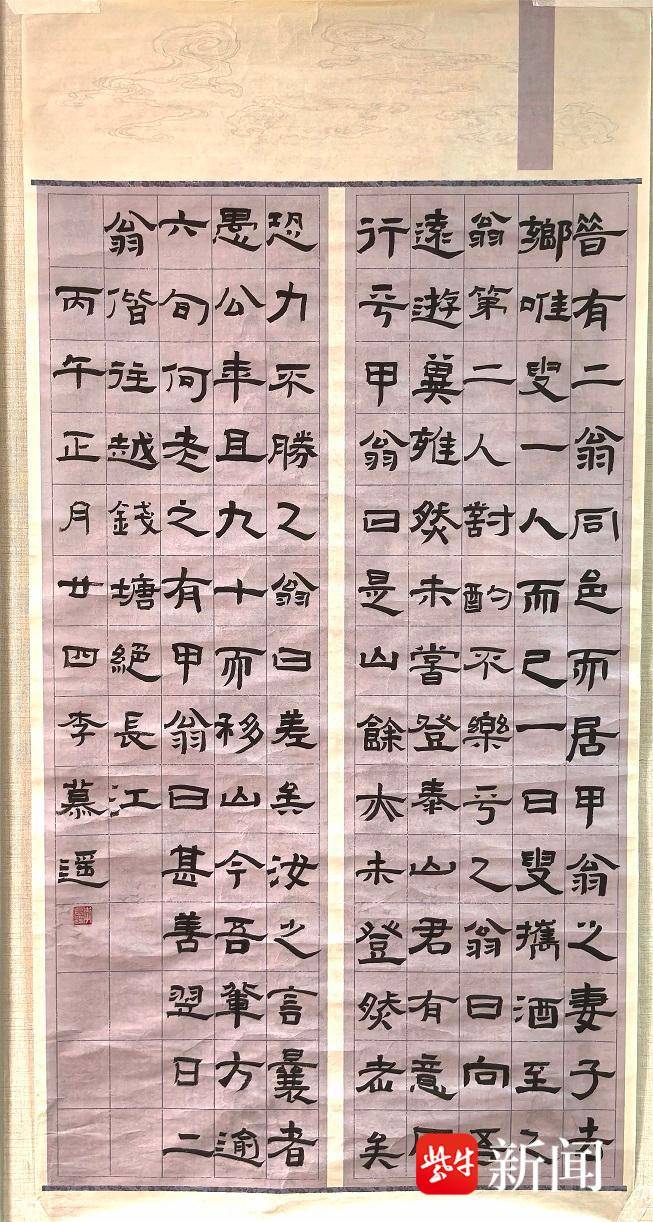 昔有二翁同邑而居甲翁之妻子去
鄉唯叟一人而已一日叟攜酒至乙
翁第二人對酌不樂乎乙翁曰向吾
遠遊冀雍然未嘗登泰山君有意同
行乎甲翁曰是山餘亦未登然老矣
恐力不勝乙翁曰差矣汝之言曩者
愚公年且九十而移山今吾輩方逾
六旬何老之有甲翁曰甚善翌日二
翁偕往越錢塘絕長江
丙午正月廿四李慕遥
紫牛新闻